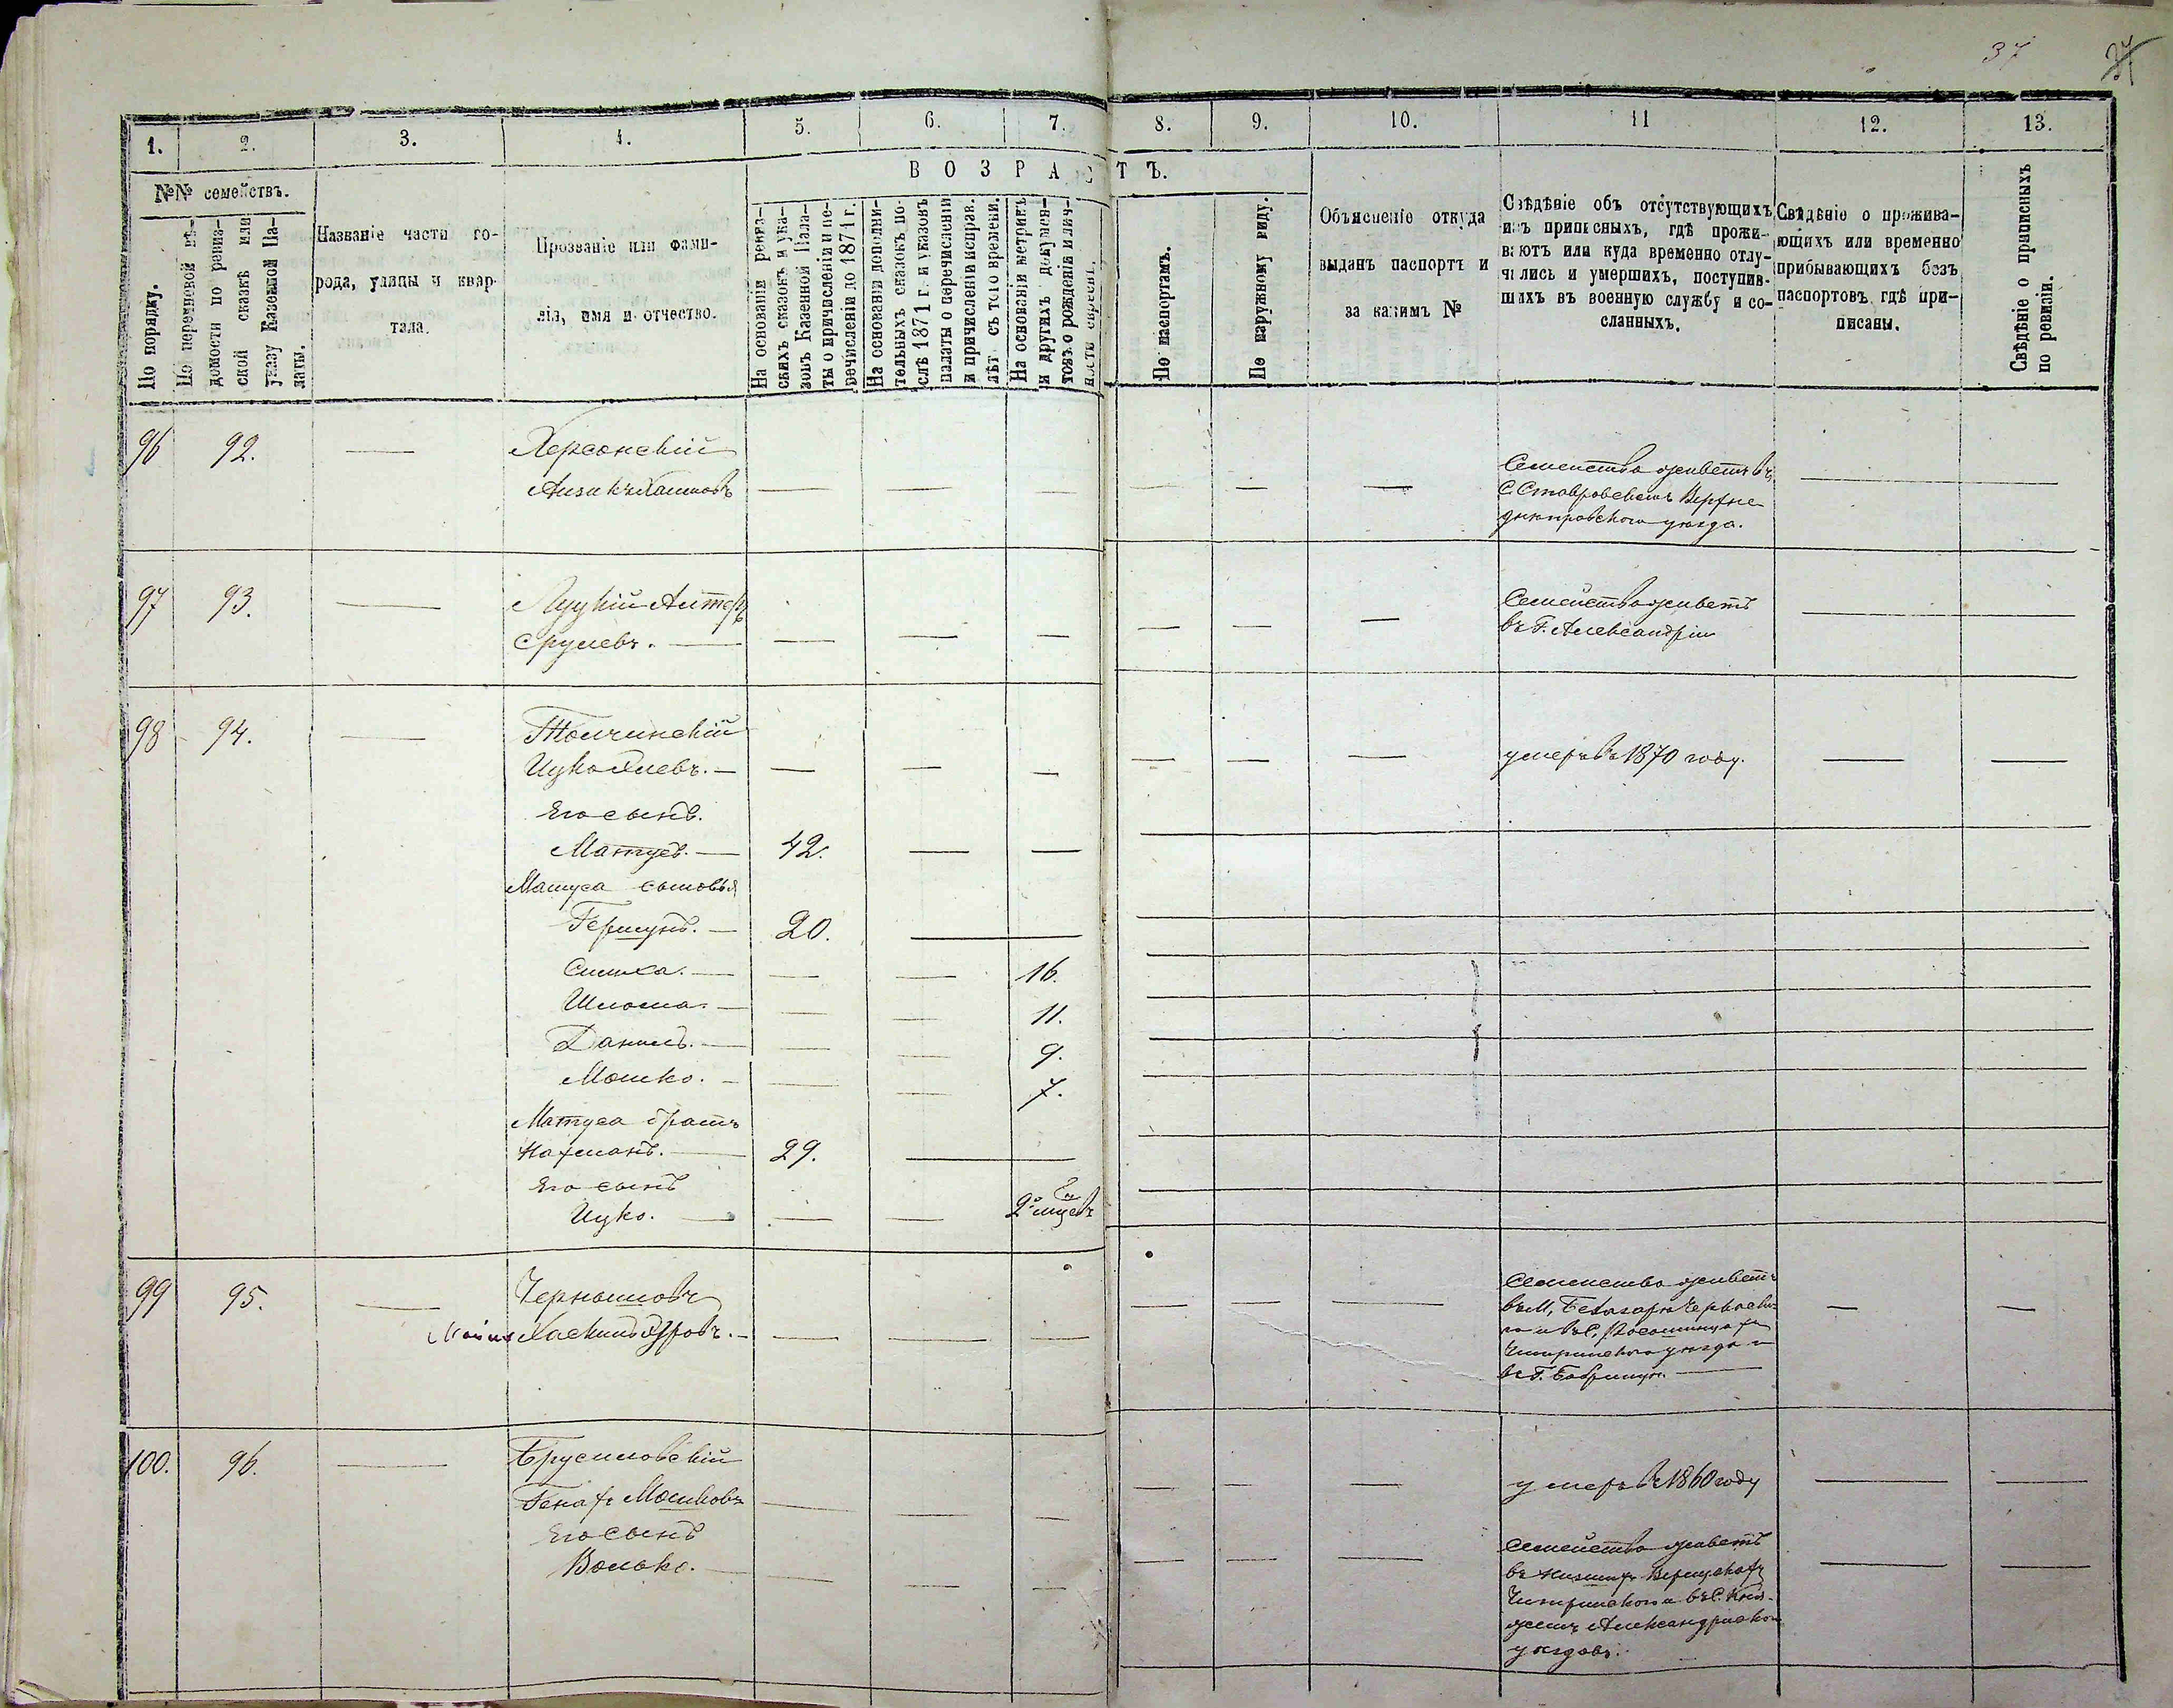 37
1. 2. 3. 4. 5. 6. 7. 8. 9. 10. 11 12. 13.
№№ семействъ.
По порядку.
По перечневой вѣ-
домости по ревиз-
ской сказкѣ или
указу Казенной Па-
латы.
Названіе части го-
рода, улицы и квар-
тала.
Прозваніе или фами-
лія, имя и отчество.
ВОЗРАСТЪ.
На основаніи ревиз-
скихъ сказокъ и ука-
зовъ Казенной Пала-
ты о причисленіи и пе-
речисленіи до 1871 г.
На основаніи дополни-
тельныхъ сказокъ по-
слѣ 1871 г. и указовъ
палаты о перечисленіи
и причисленіи исправ.
лѣт. съ того времени.
На основаніи метрикъ
и другихъ докумен-
товъ о рожденіи или
По паспортамъ.
По наружному виду.
Объясненіе откуда
выданъ паспортъ и
за какимъ №
Свѣдѣніе объ отсутствующихъ
изъ приписныхъ, гдѣ прожи-
ваютъ или куда временно отлу-
чились и умершихъ, поступив-
шихъ въ военную службу и со-
сланныхъ.
Свѣдѣніе о прожива-
ющихъ или временно
прибывающихъ безъ
паспортовъ гдѣ при-
писаны.
Свѣдѣніе о приписныхъ
по ревизіи.
96 92. Херсонскій
Семейство живетъ въ
С. Верхне
днѣпровскаго уѣзда.
97 93. Луцкій
Срулевъ.
Семейство живетъ
въ Г. Александріи
98 94. Толчинскій
Ицко умеръ въ 1870 году.
Его сынъ.
Матусъ. 42.
Матуса сыновья
Гершунъ. 20.
Симха. 16.
Шлома. 11.
Данилъ. 9.
Мошко. 7.
Матуса братъ
Нахманъ. 29.
Его сынъ
Ицко. 2
99 95. Чернышовъ
Хаскинъ
Семейство живетъ
въ М,
и въ С.
Чигиринскаго уѣзда и
въ Г. Бобринцѣ.
100. 96. Брусиловскій
Мошковъ умеръ въ 1860 году
Его сынъ
Волько.
Семейство живетъ
въ
Чигиринскаго и въ С.
Александрійскаго
уѣздовъ.